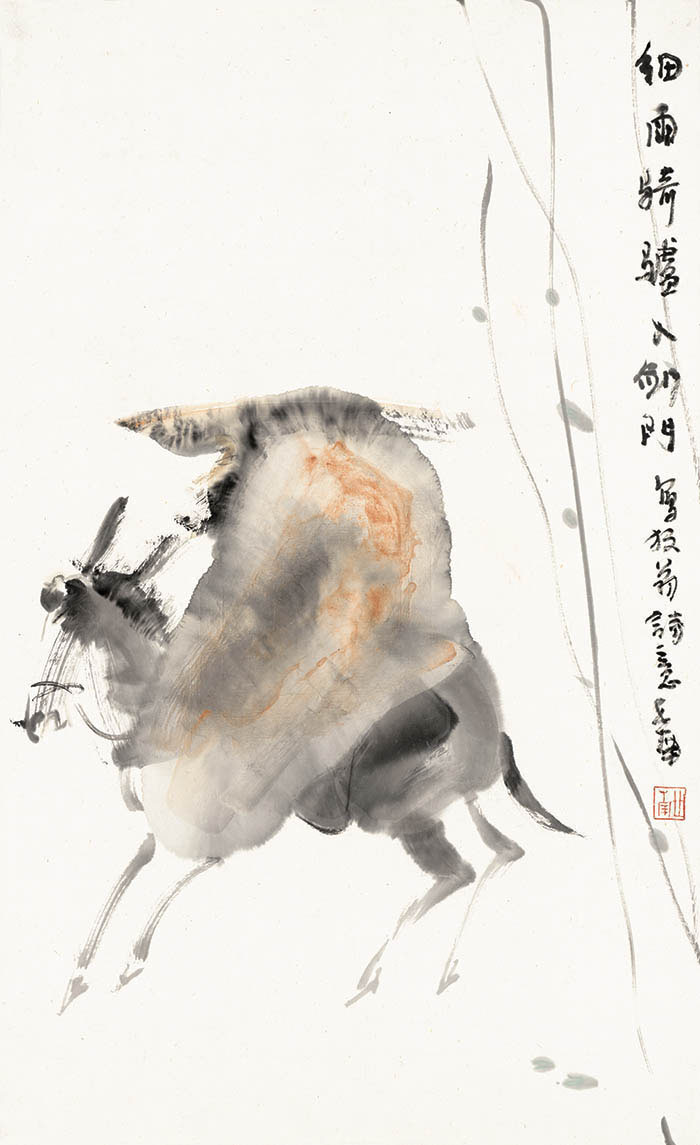 細雨騎驢入劍門 寫放翁詩意